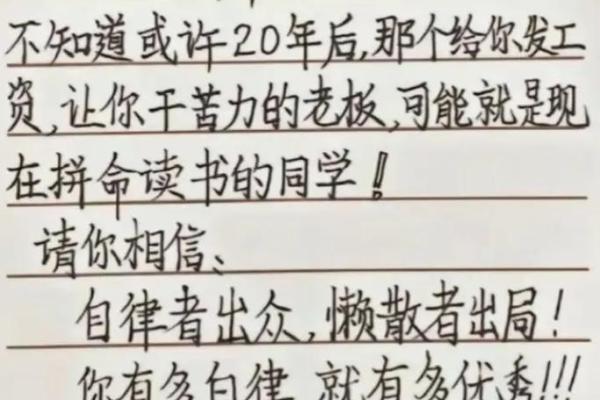 不知道或许20年后,那个给你发工
资,让你干苦力的老板,可能就是现
在拼命读书的同学!
请你相信:
自律者出众,懒散者出局!
你有多自律 就有多优秀!!!